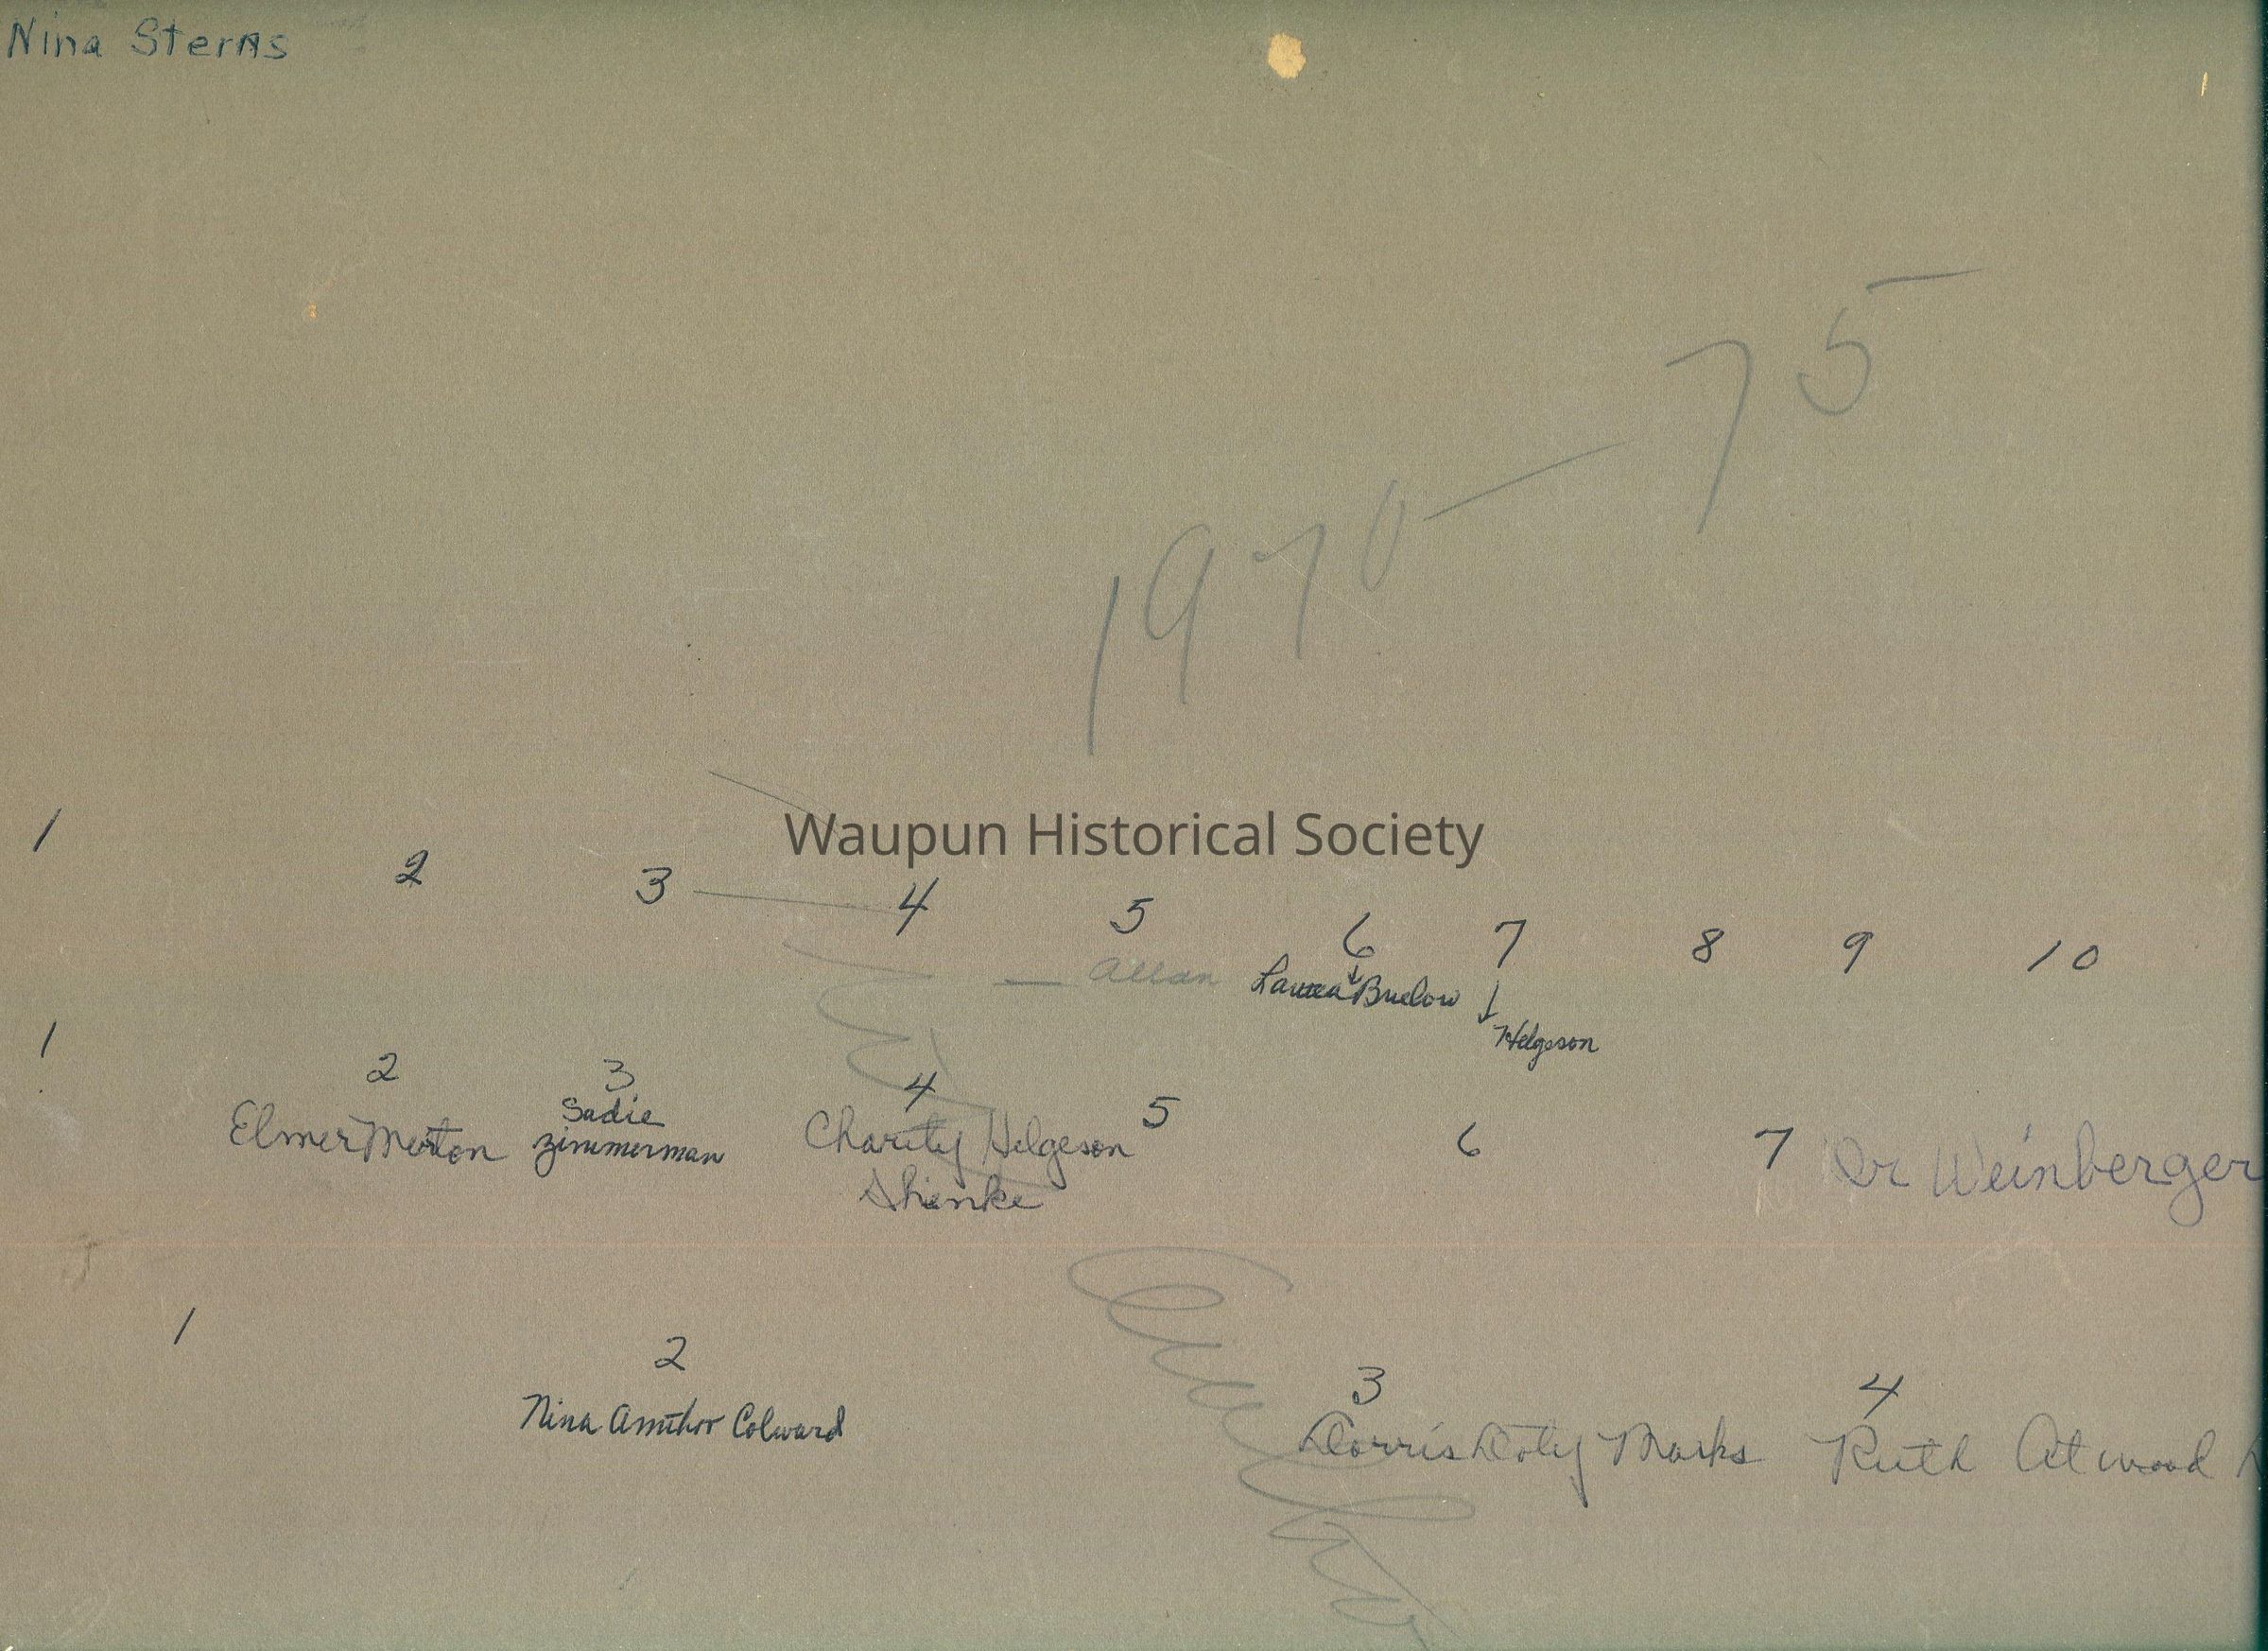 Nina Sterns
1970 — 75
Waupun Historical Society
1 2 3 — 4 5 6 7 8 9 10
— Allan Laura Buelow
Helgeson
1 2 3 4 5 6 7 Dr Weinberger
Elmer Merton Sadie Zimmerman Charity Helgeson
Shenke
1 2 3 4
Nina Amthor Colward Dorris Doty Marks Ruth Atwood